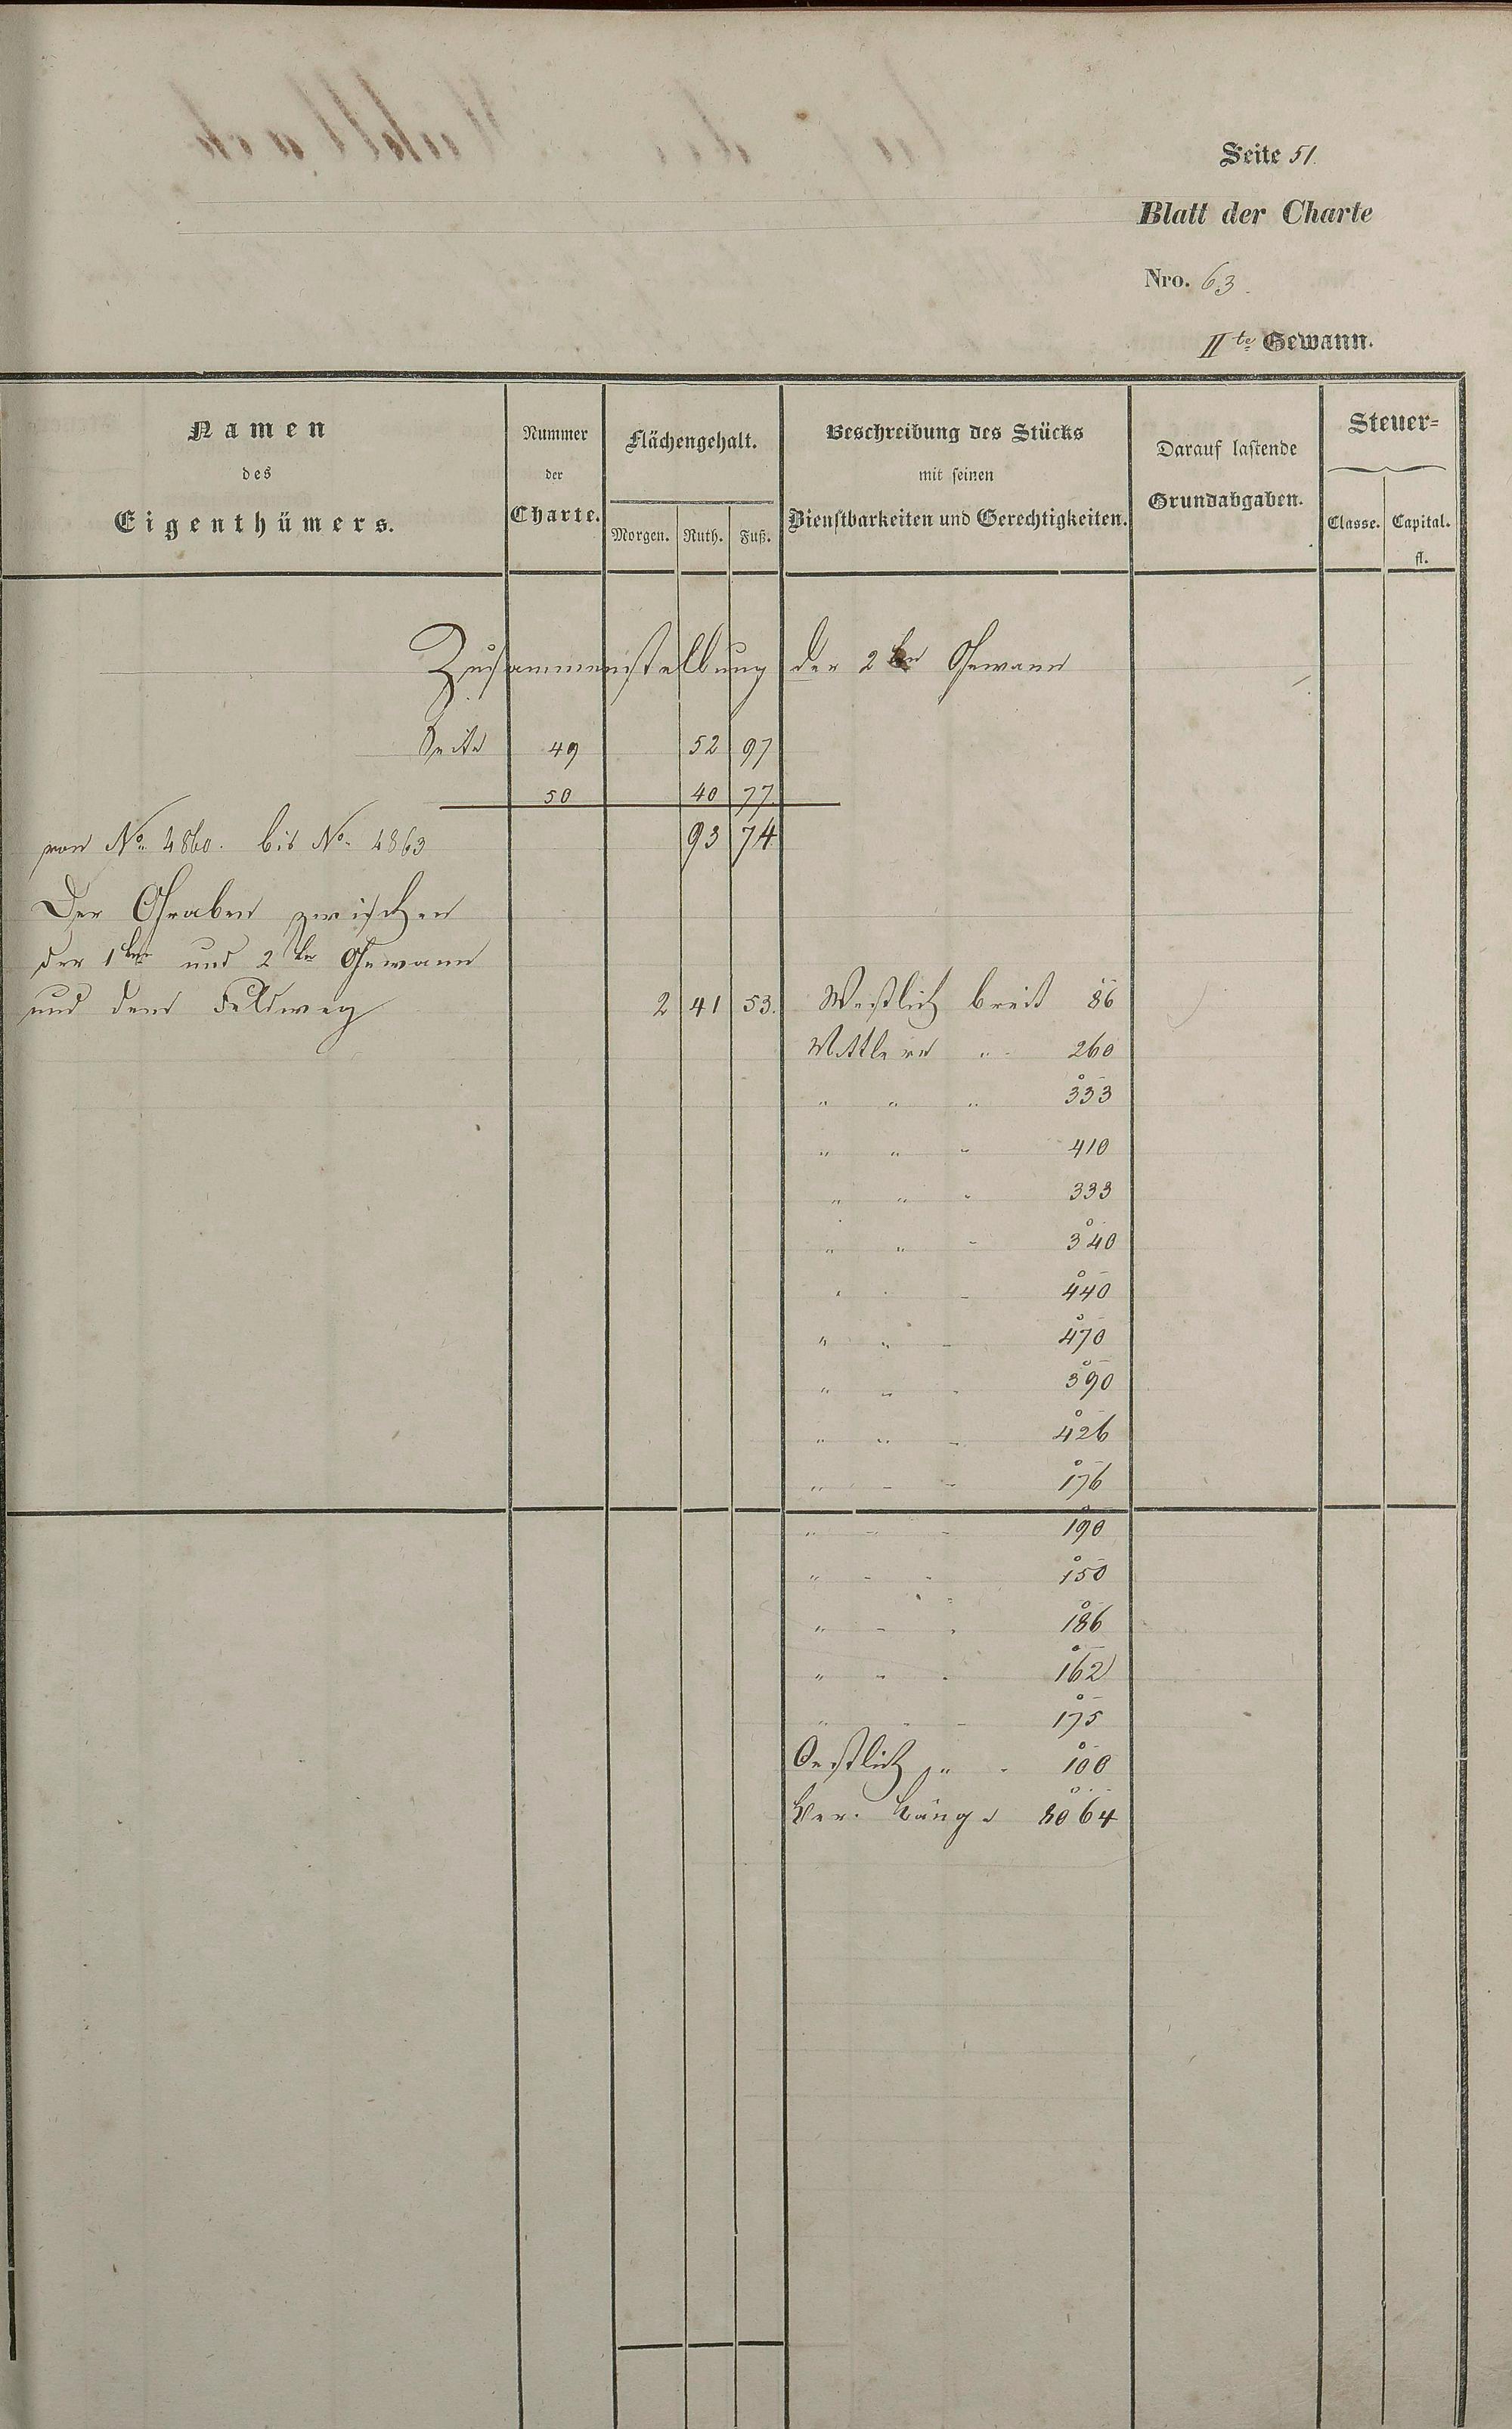 Seite 51.
Blatt der Charte
Nro. 63.
IIte Gewann.
Namen
des
Eigenthümers.
Nummer
der
Charte.
Flächengehalt.
Morgen. Ruth. Fuß.
Beschreibung des Stücks
mit seinen
Dienstbarkeiten und Gerechtigkeiten.
Darauf lastende
Grundabgaben.
Steuer=
Classe. Capital.
fl.
Zusammenstellung der 2ten Gewann
Seite 49 52 97
50 40 77.
von No. 4860. bis No. 4863 93 74
Der Graben zwischen
der 1ten und 2ten Gewann
und dem Feldweg 2 41 53. Westlich breit 86
Mittlere " 260
" " " 333
" " " 410
" " " 333
" " " 340
" " " 440
" " " 470
" " " 390
" " " 426
" " " 176
" " " 190
" " " 150
" " " 186
" " " 162
" " " 175
Oestlich " " 100
Ver. Länge 8064